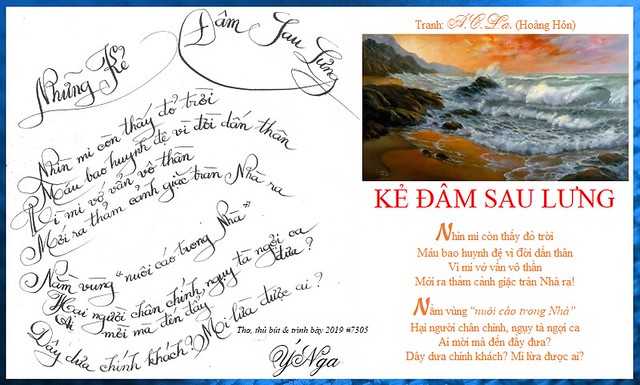 Những Kẻ
Đâm Sau Lưng
Nhìn mi còn thấy đỏ trời
Máu bao huynh đệ vì đời dấn thân
Vì mi vớ vẩn vô thần
Mới ra thảm cảnh giặc tràn Nhà ra
Nằm vùng “nuôi cáo trong Nhà”
Hại người chân chính, ngụy tà ngợi ca
Ai mời mà đến đây đưa?
Dây dưa chính khách? Mi lừa được ai?
Thơ, thủ bút & trình bày 2019 #7305
Ý Nga
Tranh: A.C.La. (Hoàng Hôn)
KẺ ĐÂM SAU LƯNG
Nhìn mi còn thấy đỏ trời
Máu bao huynh đệ vì Đời dấn thân
Vì mi vớ vẩn vô thần
Mới ra thảm cảnh giặc tràn Nhà ra!
Nằm vùng “nuôi cáo trong Nhà”
Hại người chân chính, ngụy tà ngợi ca
Ai mời mà đến đây đưa?
Dây dưa chính khách? Mi lừa được ai?